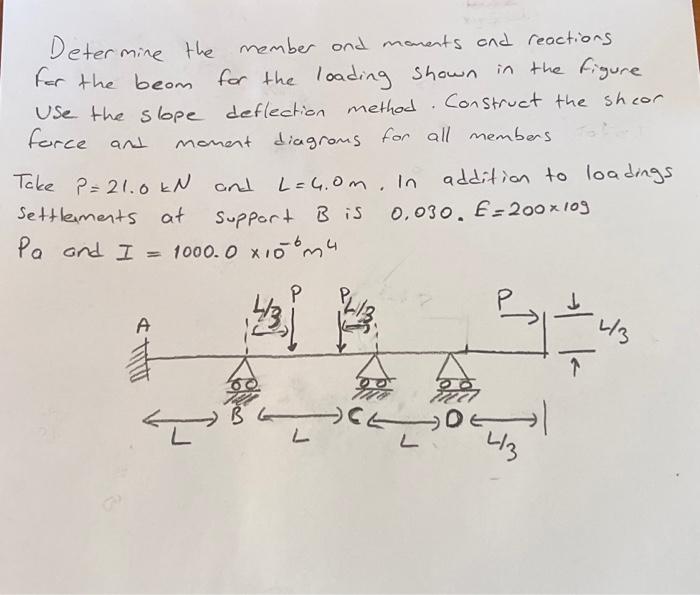 Determine the member and moments and reactions
for the beam for the loading shown in the figure
Use the slope deflection method. Construct the shear
force and moment diagrams for all members
Take P=21.0 kN and L=4.0m. In addition to loadings
settlements at support B is 0,030. E=200x109
Pa and I = 1000.0 x10^-6 m^4
L/3 P P L/3 P L/3
A
B C D
L L L L/3